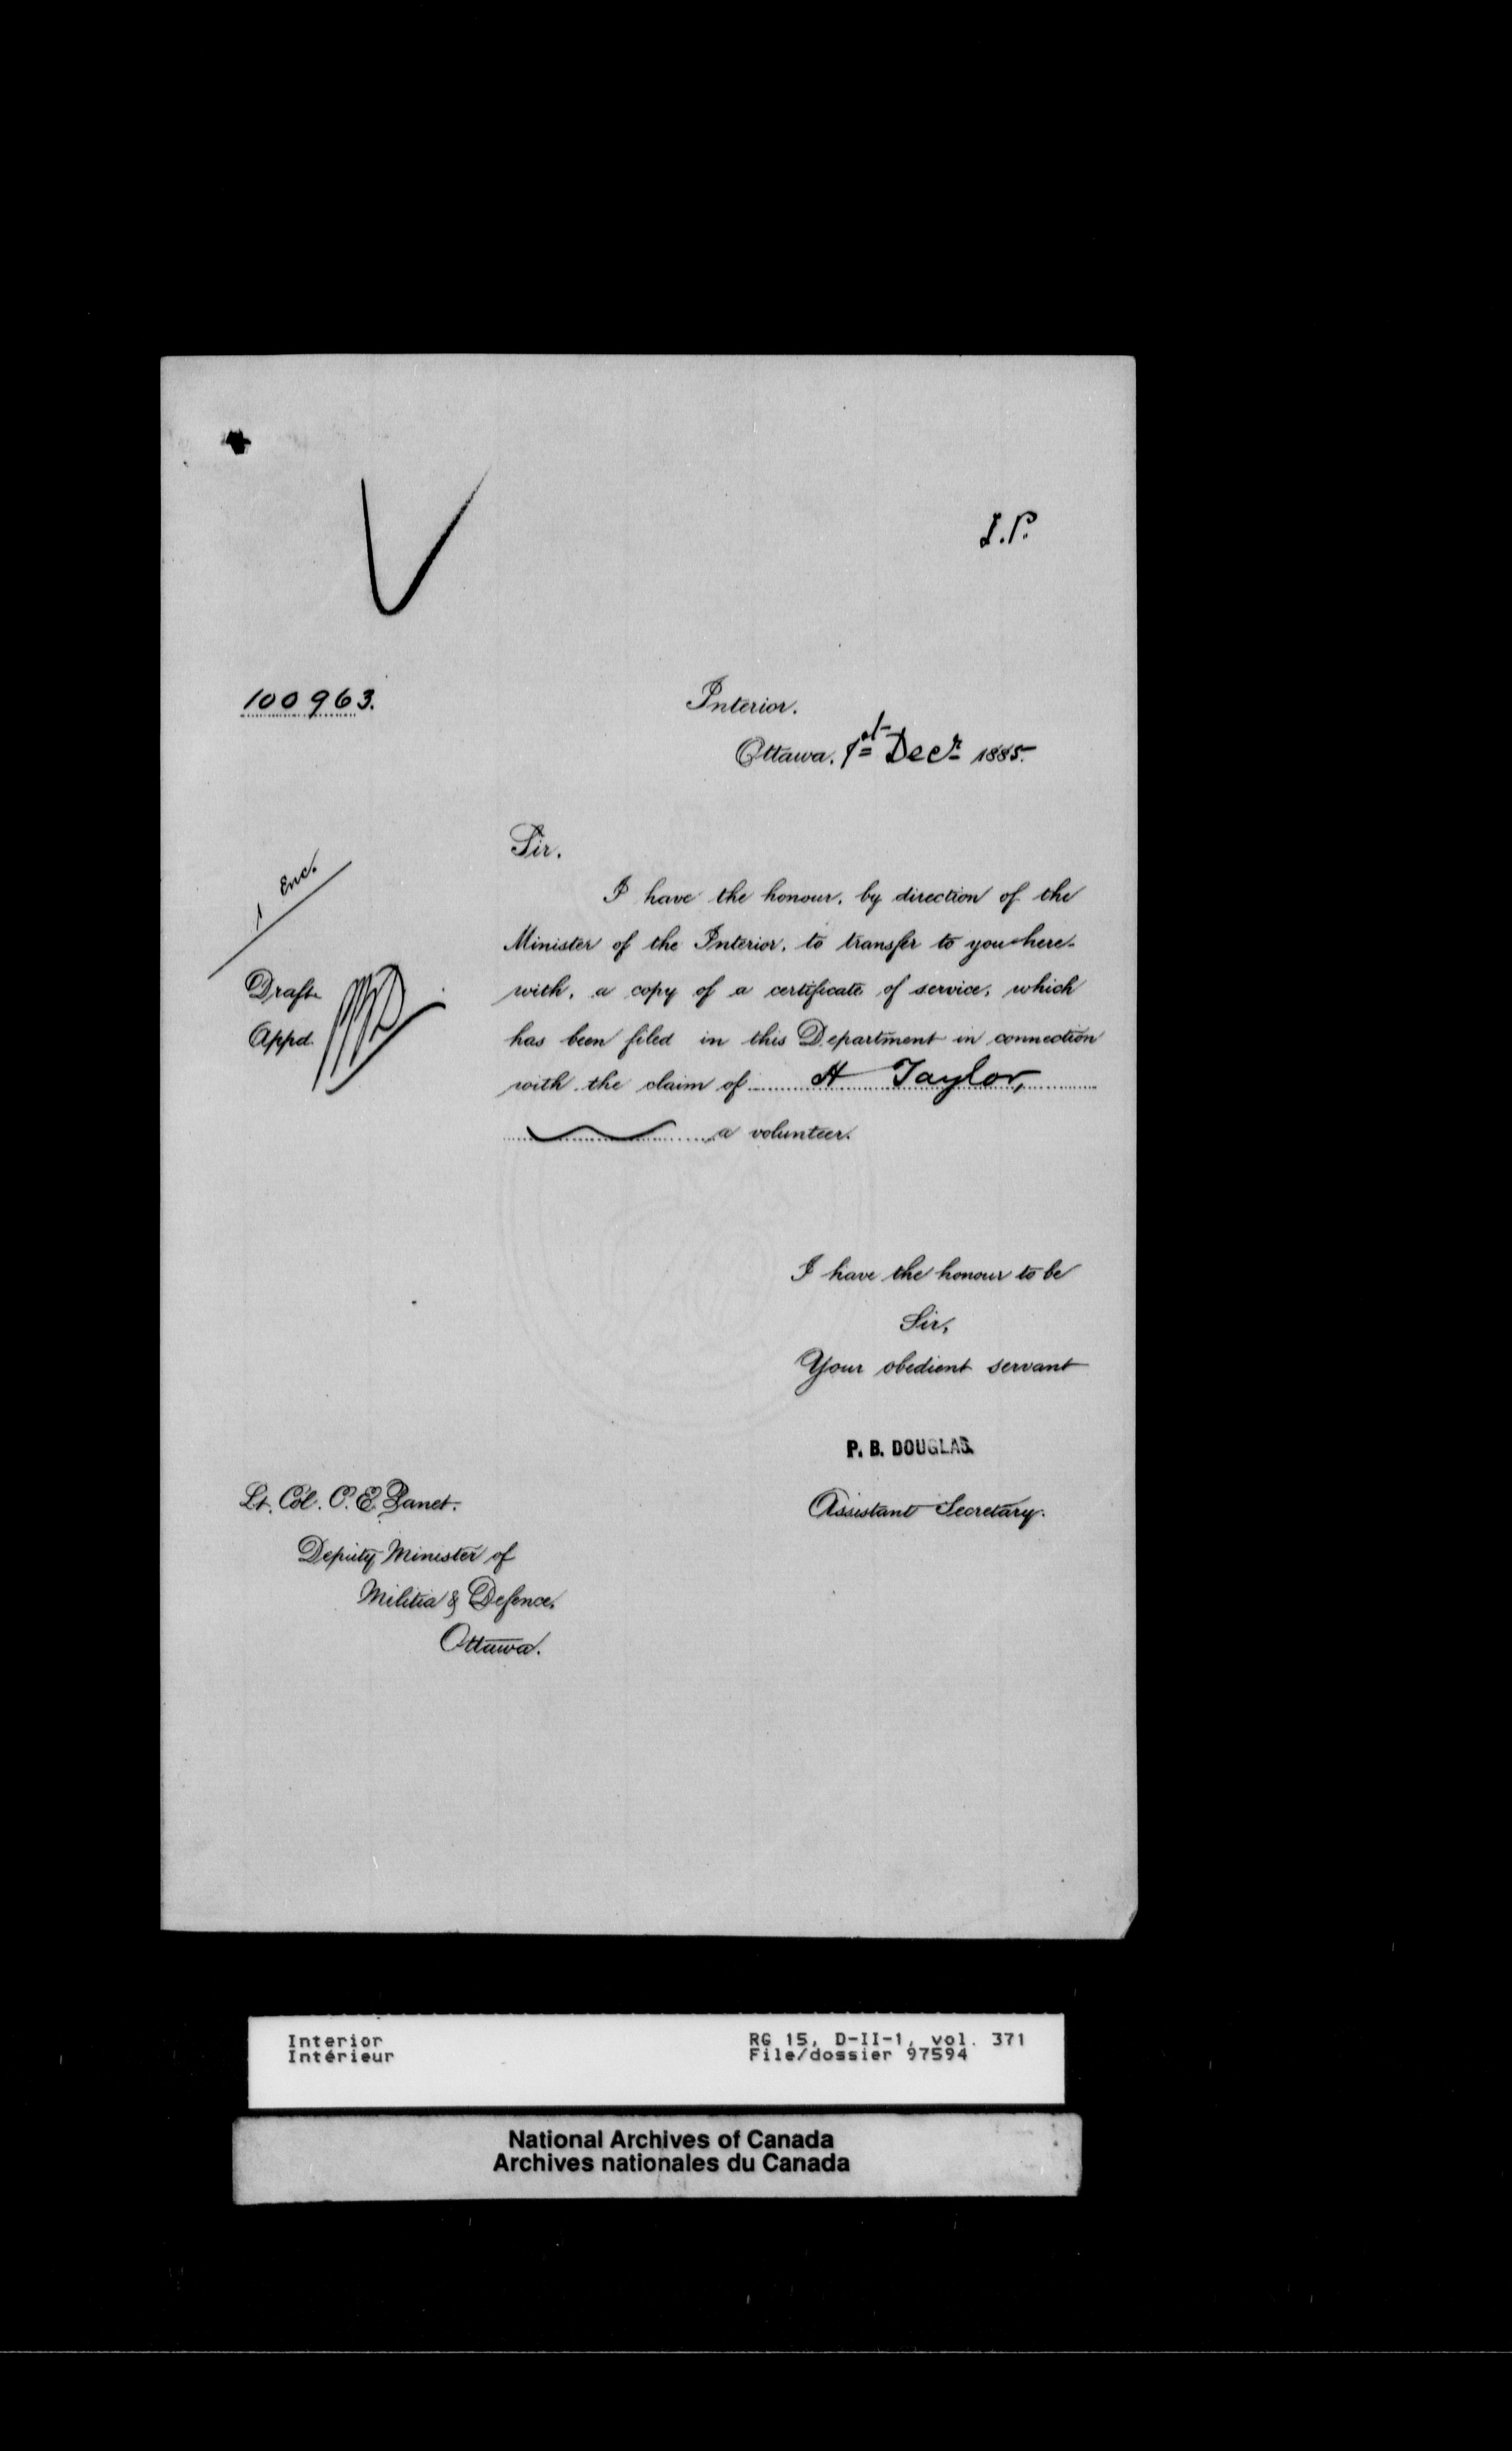 I.P.
100963.
Interior.
Ottawa. 1st Decr 1885.
1 Enc.
Sir.
I have the honour, by direction of the
Minister of the Interior, to transfer to you here-
with, a copy of a certificate of service, which
has been filed in this Department in connection
with the claim of H Taylor,
a volunteer.
Draft
Appd.
I have the honour to be
Sir,
Your obedient servant
P. B. DOUGLAS.
Assistant Secretary.
Lt. Col. C. E. Panet.
Deputy Minister of
Militia & Defence,
Ottawa.
Interior
Intérieur
RG 15, D-II-1, vol. 371
File/dossier 97594
National Archives of Canada
Archives nationales du Canada